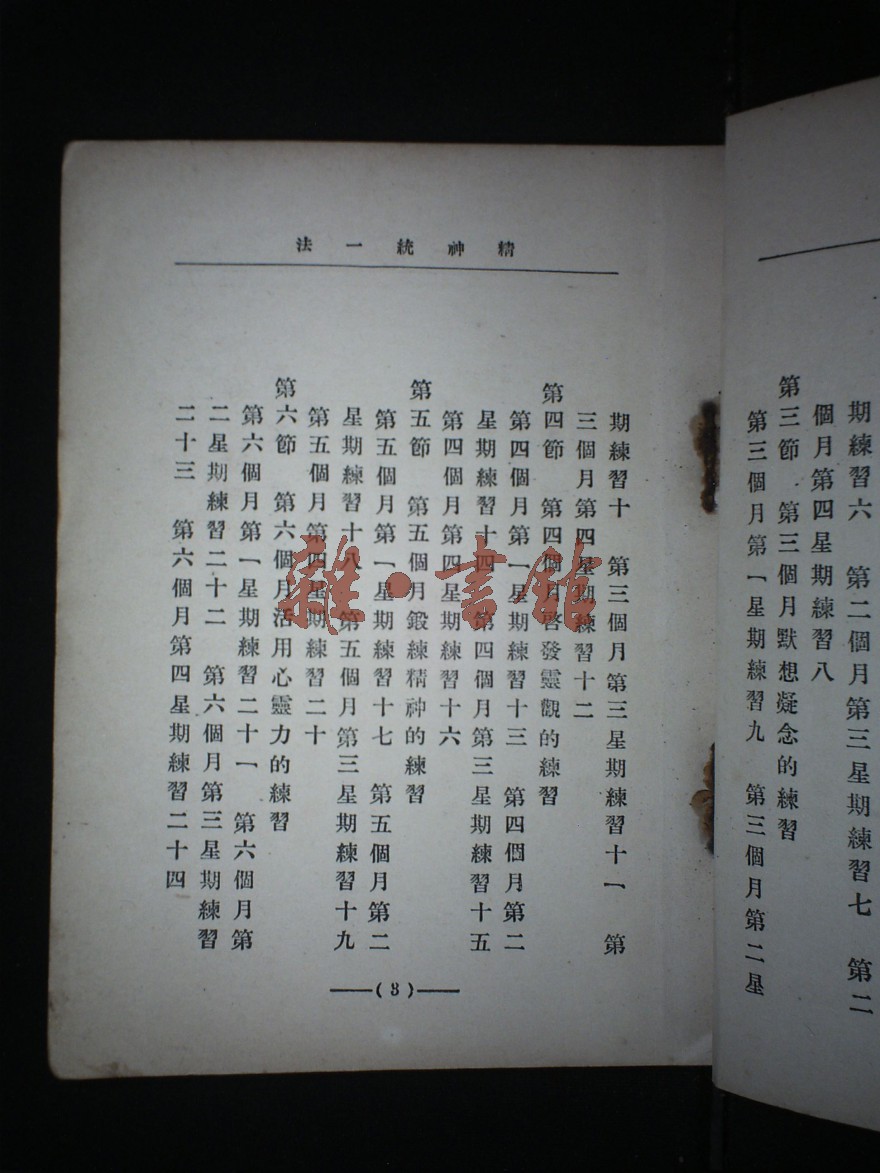 期練習六　第二個月第三星期練習七　第二
個月第四星期練習八
第三節　第三個月默想凝念的練習
第三個月第一星期練習九　第三個月第二星
精神統一法
期練習十　第三個月第三星期練習十一　第
三個月第四星期練習十二
第四節　第四個月啓發靈觀的練習
第四個月第一星期練習十三　第四個月第二
星期練習十四　第四個月第三星期練習十五
第四個月第四星期練習十六
第五節　第五個月鍛練精神的練習
第五個月第一星期練習十七　第五個月第二
星期練習十八　第五個月第三星期練習十九
第五個月第四星期練習二十
第六節　第六個月活用心靈力的練習
第六個月第一星期練習二十一　第六個月第
二星期練習二十二　第六個月第三星期練習
二十三　第六個月第四星期練習二十四
(3)
雜·書館